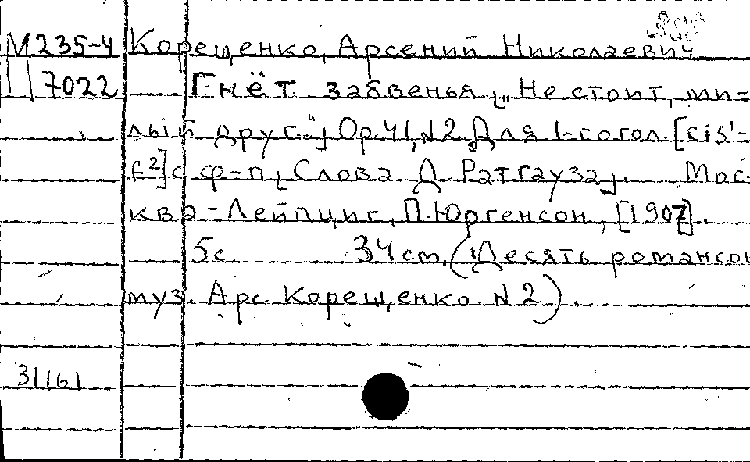 М235-4 Корещенко, Арсений Николаевич
7022 Гнёт забвенья „Не стоит, ми-
лый друг.“, Op.41, №2. Для 1-согол [cis'-
f²] с ф-п, Слова Д. Ратгауза. Мос-
ква-Лейпциг, П. Юргенсон, [1907].
5с 34 cm. (Десять романсов
муз. Арс. Корещенко №2).
31161